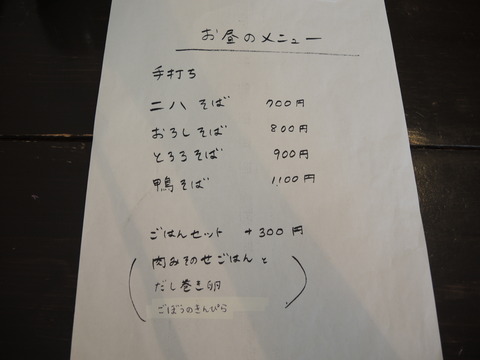 お昼のメニュー
手打ち
二八そば 700円
おろしそば 800円
とろろそば 900円
鴨そば 1,100円
ごはんセット +300円
(肉みそのせごはんと
だし巻き卵
ごぼうのきんぴら)